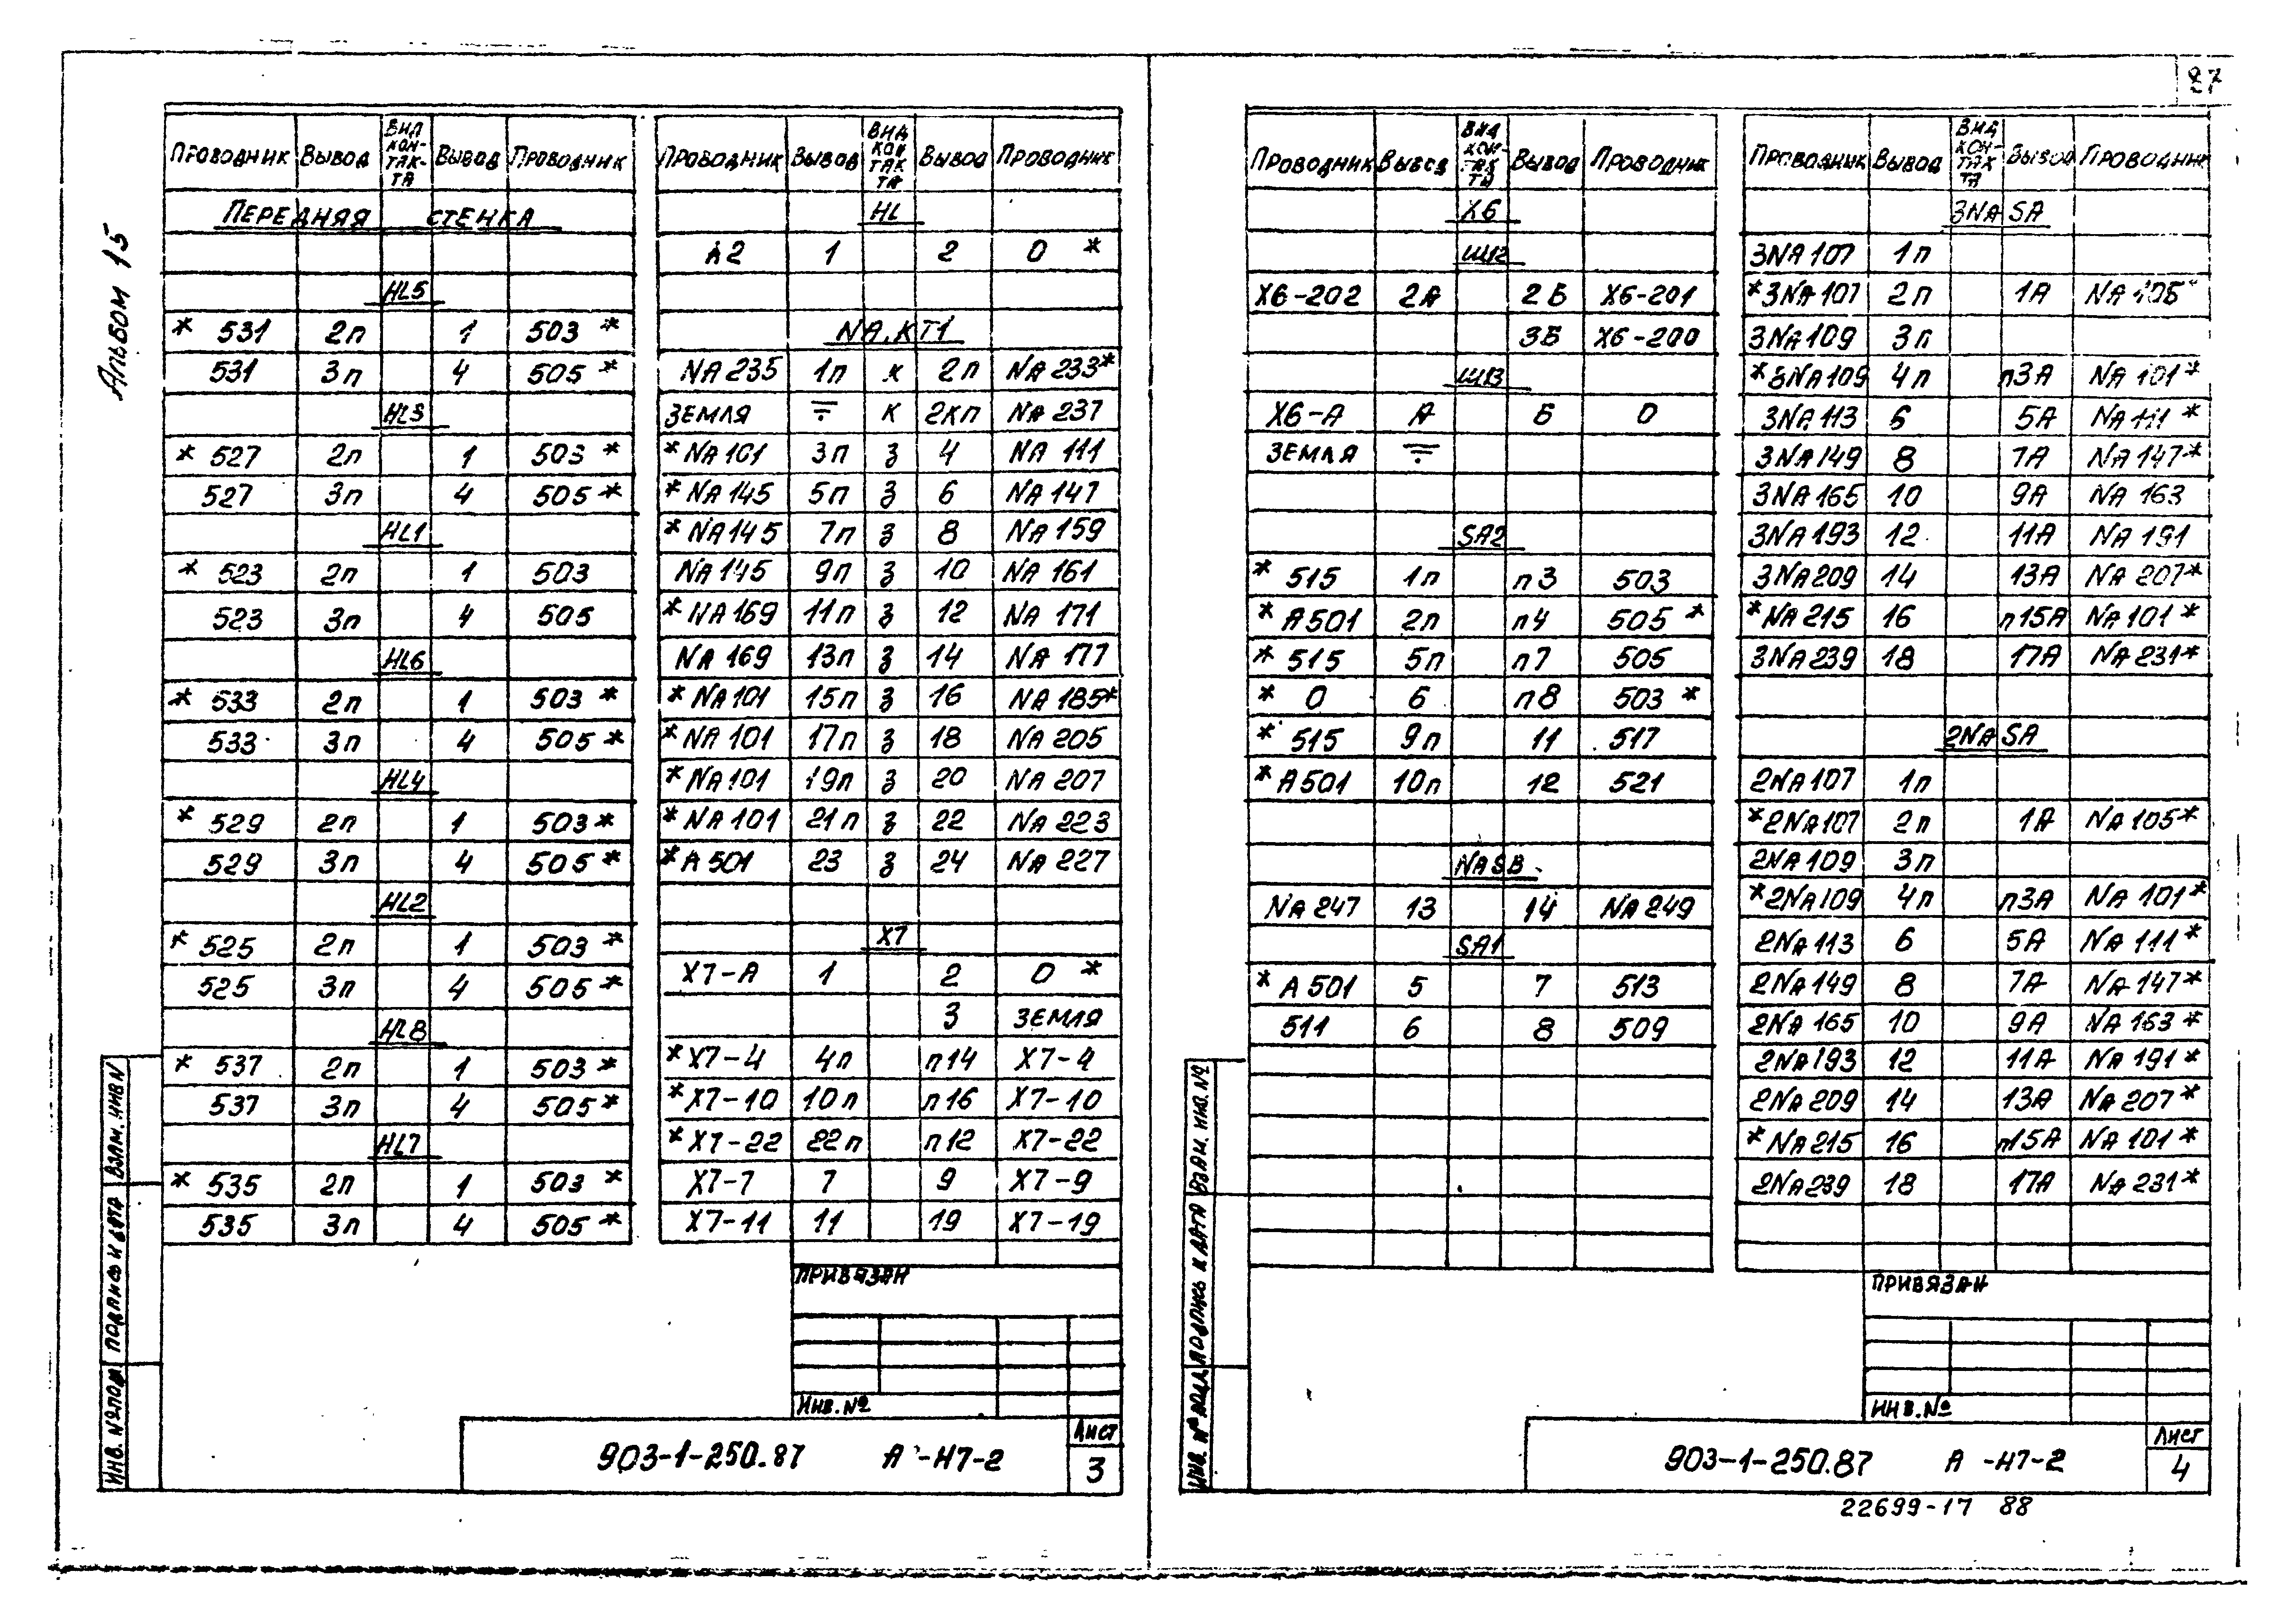 27
Альбом 15
Проводник Вывод Вид контакта Вывод Проводник
Передняя стенка
HL5
* 531 2п 1 503 *
531 3п 4 505 *
HL3
* 527 2п 1 503 *
527 3п 4 505 *
HL1
* 523 2п 1 503
523 3п 4 505
HL6
* 533 2п 1 503 *
533 3п 4 505 *
HL4
* 529 2п 1 503 *
529 3п 4 505 *
HL2
* 525 2п 1 503 *
525 3п 4 505 *
HL8
* 537 2п 1 503 *
537 3п 4 505 *
HL7
* 535 2п 1 503 *
535 3п 4 505 *
Проводник Вывод Вид контакта Вывод Проводник
HL
А2 1 2 0 *
NA.KT1
NA 235 1п к 2п NA 233 *
Земля ⏚ к 2кп NA 237
* NA 101 3п з 4 NA 111
* NA 145 5п з 6 NA 147
* NA 145 7п з 8 NA 159
NA 145 9п з 10 NA 161
* NA 169 11п з 12 NA 171
NA 169 13п з 14 NA 177
* NA 101 15п з 16 NA 185 *
* NA 101 17п з 18 NA 205
* NA 101 19п з 20 NA 207
* NA 101 21п з 22 NA 223
* А 501 23 з 24 NA 227
X7
X7-А 1 2 0 *
3 Земля
* X7-4 4п п14 X7-4
* X7-10 10п п16 X7-10
* X7-22 22п п12 X7-22
X7-7 7 9 X7-9
X7-11 11 19 X7-19
Привязан
Инв. №
903-1-250.87 А -Н7-2
Лист
3
Инв. № подл. Подпись и дата Взам. инв N
Проводник Вывод Вид контакта Вывод Проводник
X6
Ш12
X6-202 2А 2Б X6-201
3Б X6-200
Ш13
X6-А А Б 0
Земля ⏚
SA2
* 515 1п п3 503
* А501 2п п4 505 *
* 515 5п п7 505
* 0 6 п8 503 *
* 515 9п 11 517
* А501 10п 12 521
NASB
NA 247 13 14 NA 249
SA1
* А 501 5 7 513
511 6 8 509
Проводник Вывод Вид контакта Вывод Проводник
3NA SA
3NA 107 1п
* 3NA 107 2п 1А NA 105 *
3NA 109 3п
* 3NA 109 4п п3А NA 101 *
3NA 113 6 5А NA 111 *
3NA 149 8 7А NA 147 *
3NA 165 10 9А NA 163
3NA 193 12 11А NA 191
3NA 209 14 13А NA 207 *
* NA 215 16 п15А NA 101 *
3NA 239 18 17А NA 231 *
2NA SA
2NA 107 1п
* 2NA 107 2п 1А NA 105 *
2NA 109 3п
* 2NA 109 4п п3А NA 101 *
2NA 113 6 5А NA 111 *
2NA 149 8 7А NA 147 *
2NA 165 10 9А NA 163 *
2NA 193 12 11А NA 191 *
2NA 209 14 13А NA 207 *
* NA 215 16 п15А NA 101 *
2NA 239 18 17А NA 231 *
Привязан
Инв. №
903-1-250.87 А -Н7-2
Лист
4
Инв. № подл. Подпись и дата Взам. инв. №
22699-17 88